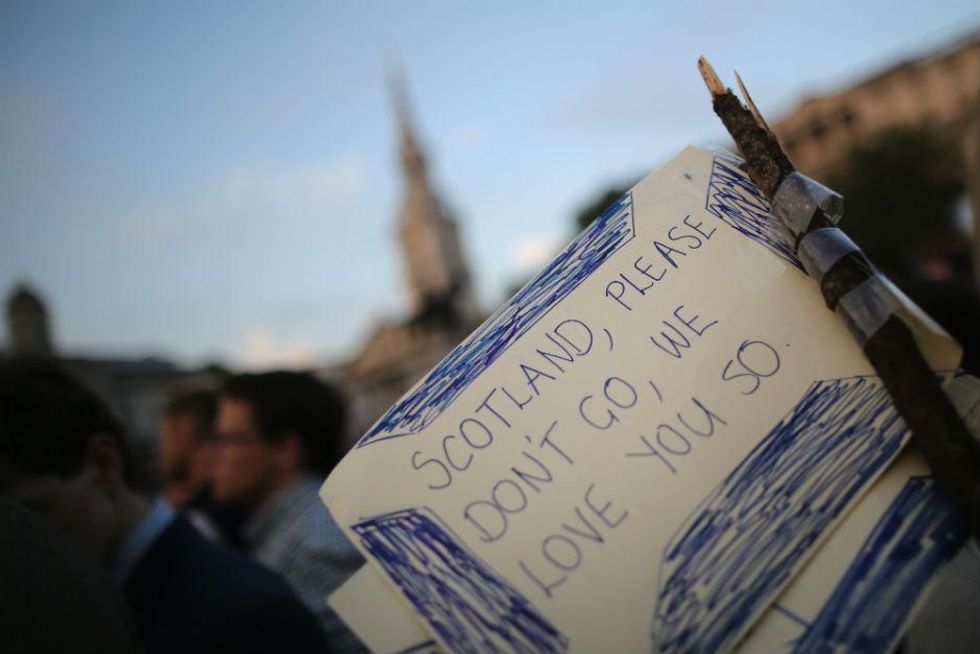 SCOTLAND, PLEASE
DON'T GO, WE
LOVE YOU SO.